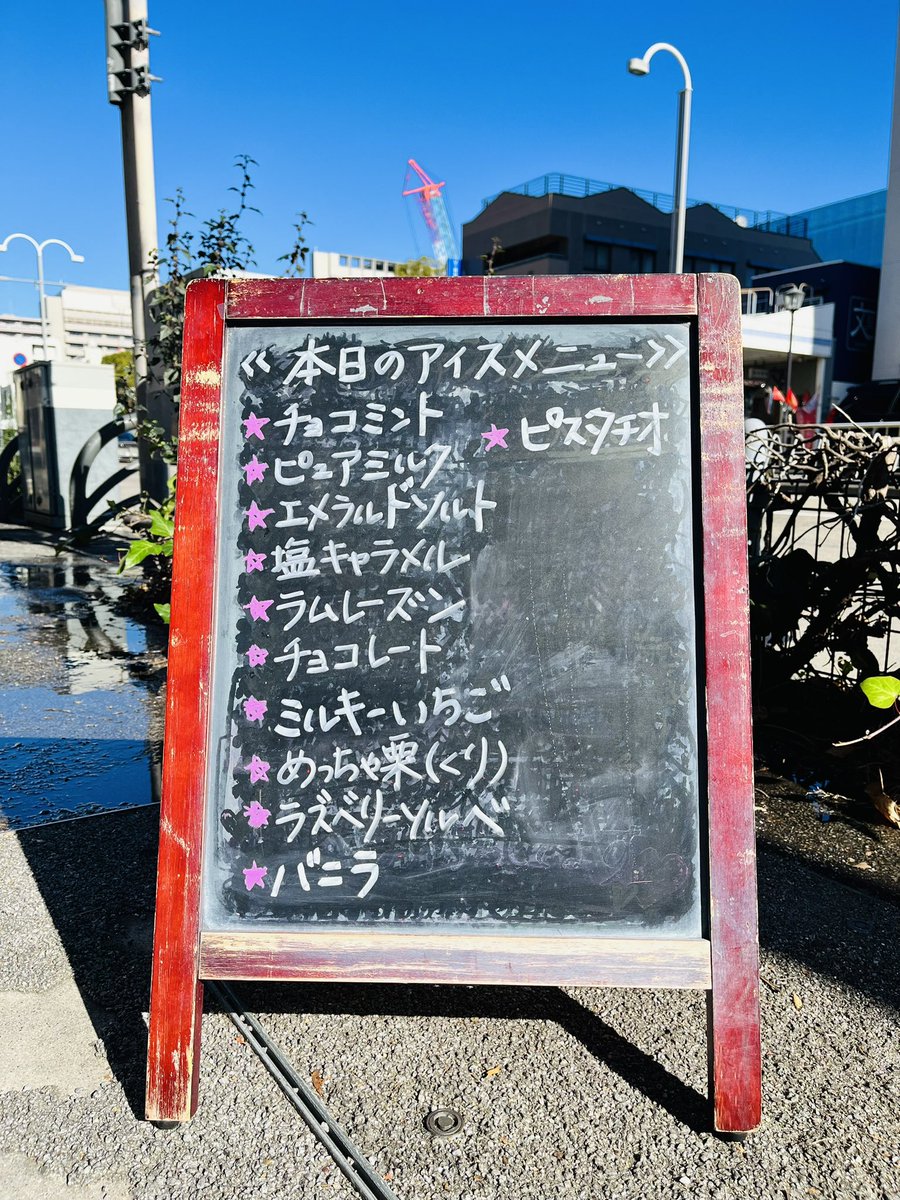 ≪本日のアイスメニュー≫
★チョコミント
★ピュアミルク
★エメラルドソルト
★塩キャラメル
★ラムレーズン
★チョコレート
★ミルキーいちご
★めっちゃ栗(くり)
★ラズベリーソルベ
★バニラ
★ピスタチオ